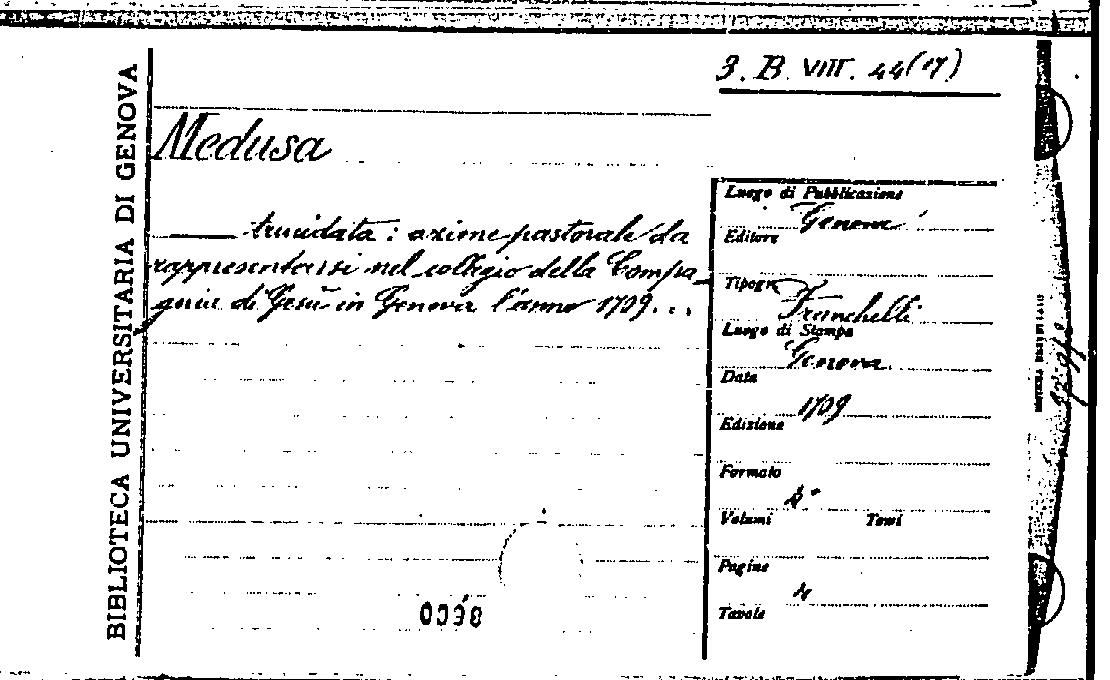 3. B. VIII. 44(17)
BIBLIOTECA UNIVERSITARIA DI GENOVA
Medusa
—— trucidata: azione pastorale da
rappresentarsi nel collegio della Compa_
gnia di Gesù in Genova l'anno 1709...
Luogo di Pubblicazione
Genova
Editore
Tipogr.
Franchelli
Luogo di Stampa
Genova
Data
1709
Edizione
Formato
4°
Volumi Tomi
Pagine
4
Tavole